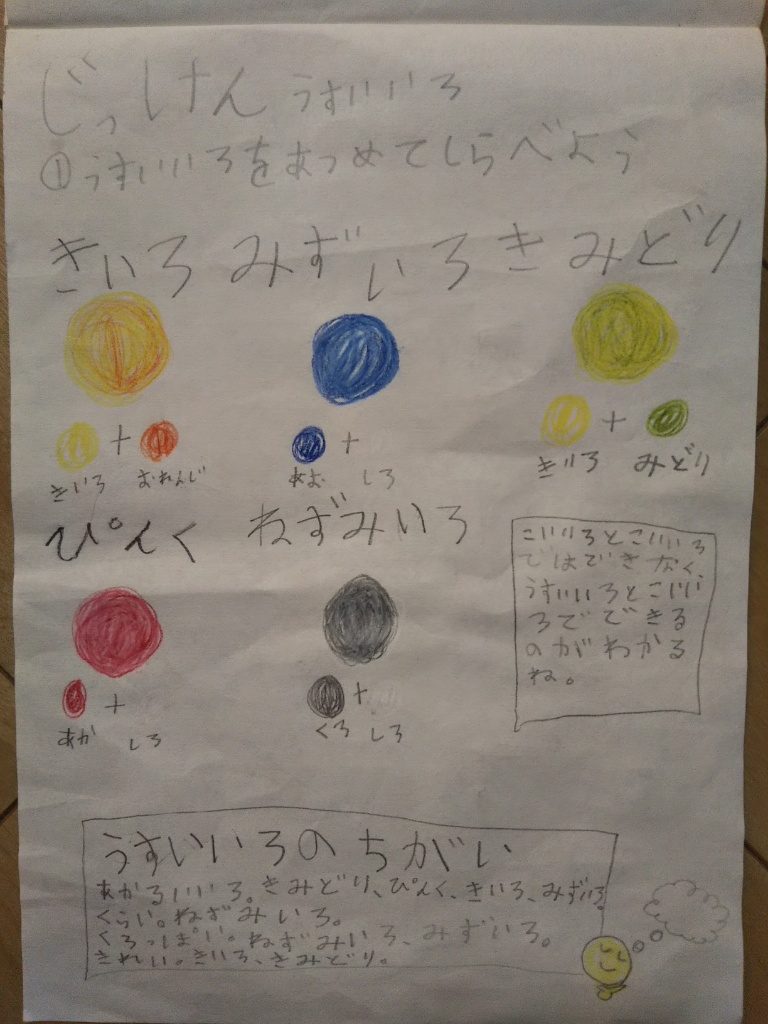 じっけん うすいいろ
①うすいいろをあつめてしらべよう
きいろ みずいろ きみどり
+ + +
きいろ おれんじ あお しろ きいろ みどり
ぴんく ねずみいろ
+ +
あか しろ くろ しろ
こいいろとこいいろ
ではできなく
うすいいろとこいい
ろでできる
のがわかる
ね。
うすいいろのちがい
あかるいいろ。きみどり、ぴんく、きいろ、みずいろ。
くらい。ねずみいろ。
くろっぽい。ねずみいろ、みずいろ。
きれい。きいろ、きみどり。